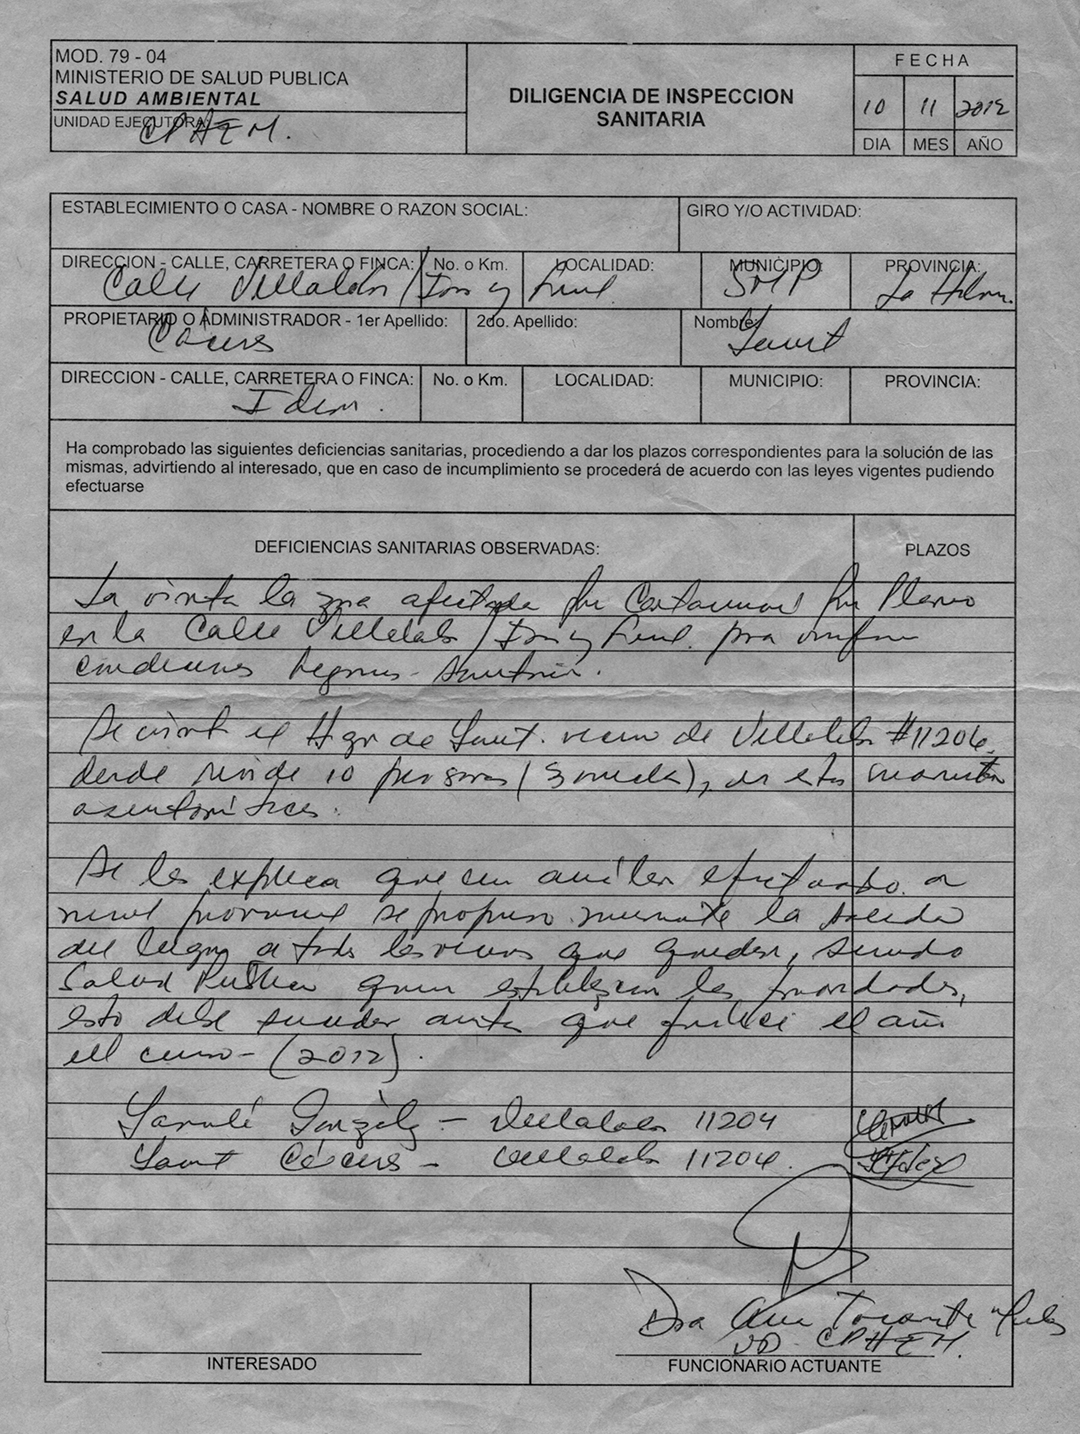 MOD. 79 - 04
MINISTERIO DE SALUD PUBLICA
SALUD AMBIENTAL
UNIDAD EJECUTORA
CPHEM.
DILIGENCIA DE INSPECCION
SANITARIA
FECHA
10 11 2012
DIA MES AÑO
ESTABLECIMIENTO O CASA - NOMBRE O RAZON SOCIAL: GIRO Y/O ACTIVIDAD:
DIRECCION - CALLE, CARRETERA O FINCA: No. o Km. LOCALIDAD: MUNICIPIO: PROVINCIA:
Calle Villalobos / y SMP La Habana.
PROPIETARIO O ADMINISTRADOR - 1er Apellido: 2do. Apellido: Nombre
Cáceres
DIRECCION - CALLE, CARRETERA O FINCA: No. o Km. LOCALIDAD: MUNICIPIO: PROVINCIA:
Idem.
Ha comprobado las siguientes deficiencias sanitarias, procediendo a dar los plazos correspondientes para la solución de las
mismas, advirtiendo al interesado, que en caso de incumplimiento se procederá de acuerdo con las leyes vigentes pudiendo
efectuarse
DEFICIENCIAS SANITARIAS OBSERVADAS: PLAZOS
la zona afectada por por Plomo
en la Calle Villalobos / y para
condiciones Higienico - Sanitarias.
Se visita el Hogar de vecino de Villalobos #11204,
donde reside 10 personas (3 ), en estos momentos
asintomáticos.
Se les explica que en efectuando a
nivel provincial se propuso la salida
del lugar a todos los vecinos que quedan, siendo
Salud Publica quien establezcan las prioridades,
esto debe suceder antes que finalice el año
en curso - (2012).
González - Villalobos 11204
Cáceres - Villalobos 11204.
Dra Ana
CPHEM.
INTERESADO FUNCIONARIO ACTUANTE